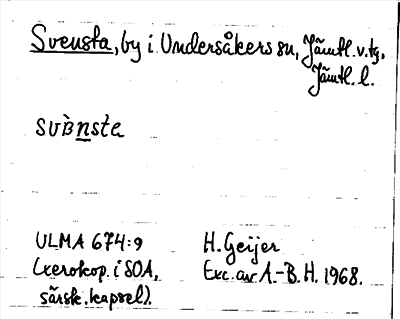 Svensta, by i Undersåkers sn, Jämtl. v. tg,
Jämtl. l.
ULMA 674:9
(xerokop. i SOA,
särsk. kapsel).
H. Geijer
Exc. av A.-B. H. 1968.